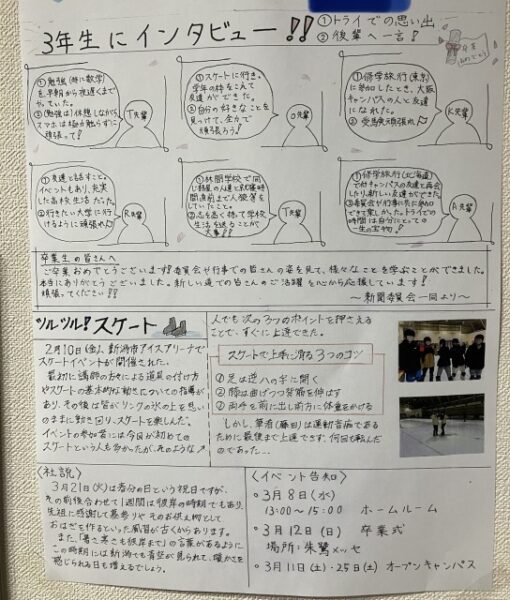 3年生にインタビュー!!
①トライでの思い出
②後輩へ一言!
卒業
おめでとう
①勉強(特に数学)
を早朝から夜遅くまで
やっていた。
②勉強は1休憩しながら、
スマホは極力触らずに
頑張って!
T先輩
①スケートに行き、
学年の枠をこえて
友達ができた。
②自分の好きなことを
見つけて、全力で
頑張ろう!
O先輩
①修学旅行(東京)
に参加したとき、大阪
キャンパスの人と友達
になれた。
②受験頑張れ
K先輩
①友達と話すこと。
イベントもあり、充実
した高校生活だった。
②行きたい大学に行
けるように頑張れ
R先輩
①林間学校で同
じ部屋の人達と就寝時
間直前まで人狼等を
していたこと。
②志を高く持って学校
生活を送ることが
大事!!
T先輩
①修学旅行(北海道)
で他キャンパスの友達と再会
したり、新しい友達ができた。
②委員会が行事に共に参加
できて楽しかった。トライでの
時間は自分にとっての
一生の宝物!
A先輩
卒業生の皆さんへ
ご卒業おめでとうございます!委員会が行事での皆さんの姿を見て、様々なことを学ぶことができました。
本当にありがとうございました。新しい道での皆さんのご活躍を心から応援しています!
頑張ってください!!
〜新聞委員会一同より〜
ツルツル!スケート
2月10日(金)、新潟市アイスアリーナで
スケートイベントが開催された。
最初に講師の方々による道具の付け方
やスケートの基本的な動きについての指導が
あり、その後は皆がリンクの氷の上を思い
のままに動き回り、スケートを楽しんだ。
イベントの参加者には今回が初めての
スケートという人も多かったが、そのような
人でも次の3つのポイントを押さえる
ことで、すぐに上達できた。
スケートで上手に滑る3つのコツ
①足は逆ハの字に開く
②膝は曲げつつ背筋を伸ばす
③両手を前に出し前方に体重をかける
しかし、筆者(藤田)は運動音痴である
ために最後まで上達できず、何回も転んだ
のであった…
〈社説〉
3月21日(火)は春分の日という祝日ですが、
その前後合わせて1週間は彼岸の時期でもあり、
先祖に感謝して墓参りやそのお供え物として
おはぎを作るといった風習が古くからあります。
また、「暑さ寒さも彼岸まで」の言葉があるように
この時期には新潟でも青空が見られて、暖かさを
感じられる日も増えるでしょう。
〈イベント告知〉
・3月8日(水)
13:00〜15:00 ホームルーム
・3月12日(日) 卒業式
場所:朱鷺メッセ
・3月11日(土)・25日(土) オープンキャンパス